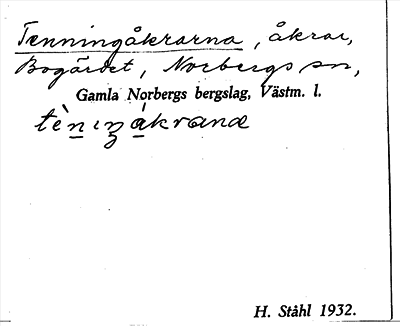 Tenningåkrarna, åkrar,
Bogärdet, Norbergs sn,
Gamla Norbergs bergslag, Västm. l.
tènıŋákrana
H. Ståhl 1932.